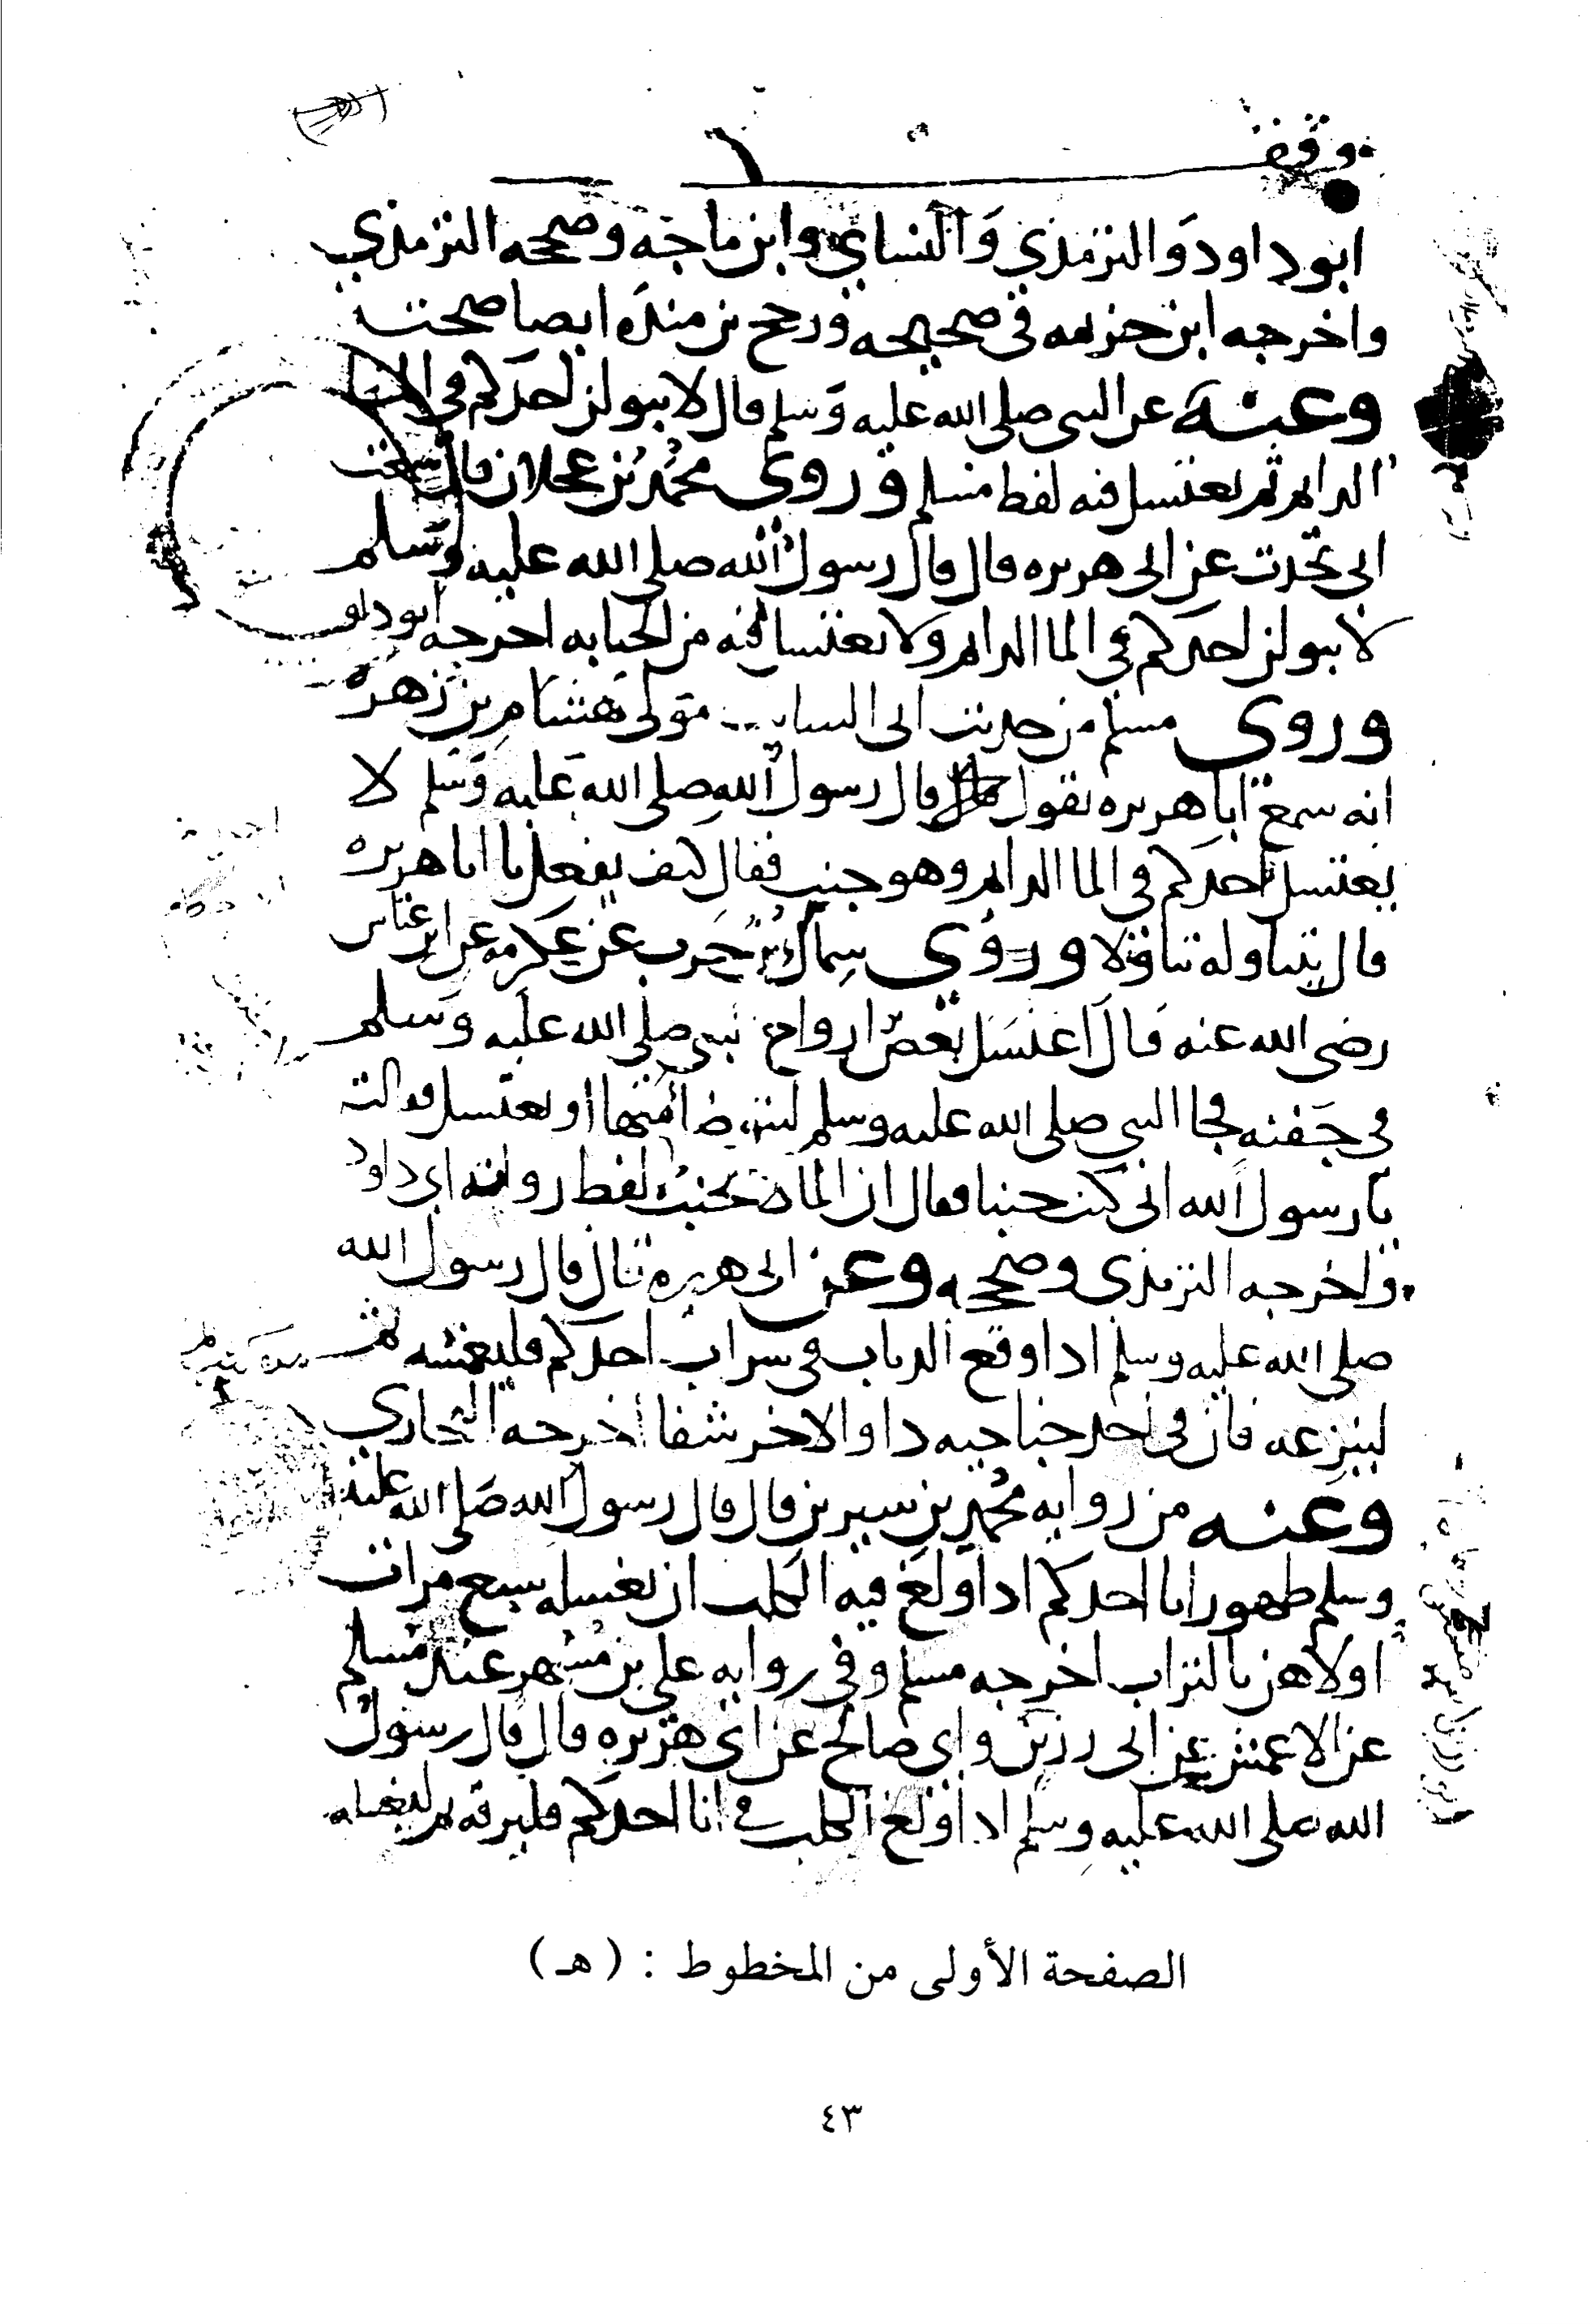 وقف
ابوداود والترمذي والنساي وابن ماجه وصححه الترمذي
واخرجه ابن خزيمه في صحيحه ورجح بن منده ايضا صحته
وعنه عن النبي صلى الله عليه وسلم قال لا يبولن احدكم في الما
الدايم ثم يغتسل فيه لفظ مسلم وروى محمد بن عجلان قال سمعت
ابي يحدث عن ابي هريره قال قال رسول الله صلى الله عليه وسلم
لا يبولن احدكم في الما الدايم ولا يغتسل فيه من الجنابه اخرجه ابو داود
وروى مسلم من حديث ابي السايب مولى هشام بن زهره
انه سمع ابا هريره يقول قال رسول الله صلى الله عليه وسلم لا
يغتسل احدكم في الما الدايم وهو جنب فقال كيف يفعل يا ابا هريره
قال يتناوله تناولا وروى سماك بن حرب عن عكرمه عن ابن عباس
رضي الله عنه قال اغتسل بعض ازواج نبي صلى الله عليه وسلم
في جفنه فجا النبي صلى الله عليه وسلم ليتوضا منها او يغتسل فقالت
يا رسول الله اني كنت جنبا فقال ان الما لا يجنب لفظ روايه ابي داود
واخرجه الترمذي وصححه وعن ابي هريره قال قال رسول الله
صلى الله عليه وسلم اذا وقع الذباب في شراب احدكم فليغمسه ثم
لينزعه فان في احد جناحيه دا والاخر شفا اخرجه البخاري
وعنه من روايه محمد بن سيرين قال قال رسول الله صلى الله عليه
وسلم طهور انا احدكم اذا ولغ فيه الكلب ان يغسله سبع مرات
اولاهن بالتراب اخرجه مسلم وفي روايه علي بن مسهر عند مسلم
عن الاعمش عن ابي رزين وابي صالح عن ابي هريره قال قال رسول
الله صلى الله عليه وسلم اذا ولغ الكلب في انا احدكم فليرقه ثم ليغسله
الصفحة الأولى من المخطوط : ( هـ )
٤٣